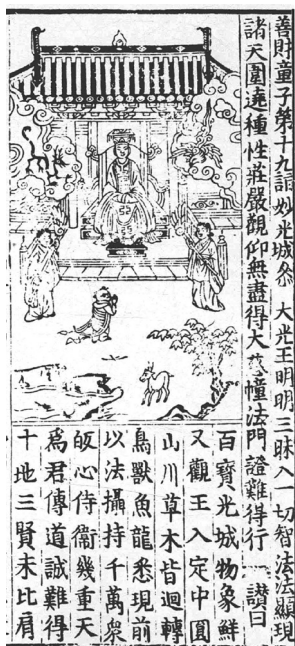 善財童子第十九詣妙光城叅 大光王明明三昧入一切智法法顯現
諸天圍遶種性莊嚴觀仰無盡得大慈幢法門證難得行 讃曰
百寶光城物象鮮
又觀王入定中圓
山川草木皆迴轉
鳥獸魚龍悉現前
以法攝持千萬衆
皈心侍衛幾重天
爲君傳道誠難得
十地三賢未比肩